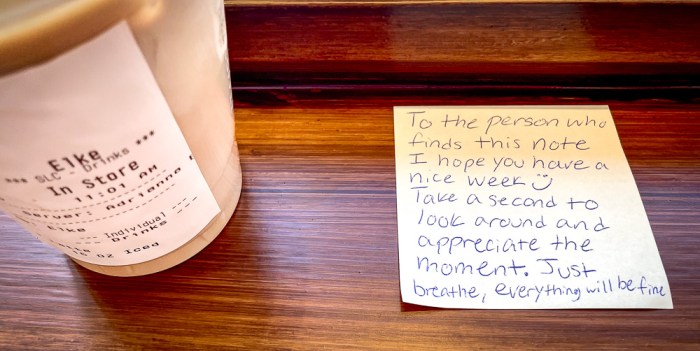 Elke
*** SLC - Drinks ***
In Store
11:01 AM
Server: Adrianna
Elke
Individual
Drinks
OZ Iced
To the person who
finds this note
I hope you have a
nice week :)
Take a second to
look around and
appreciate the
moment. Just
breathe, everything will be fine